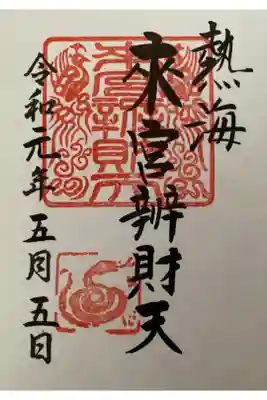 熱海
來宮辨財天
令和元年五月五日